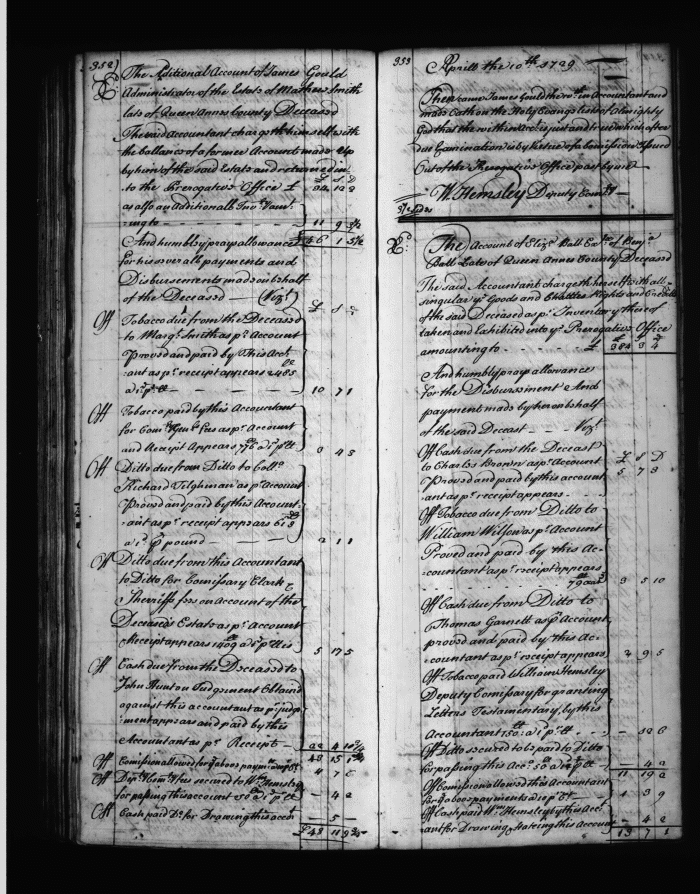 352)
The Aditional Account of James Gould
Administrator of the Estate of Mathew Smith
late of Queen Annes County Deceased
The said accountant chargeth himself with
the ballance of a former Account made up
by him of the said Estate and returned in
to the Prerogative Office £ 34 12 2
as also an Additionall
ing to 11 9 3½
£46 1 5½
And humbly prays allowance
for his overall payments and
Disbursements made on behalf
of the Deceased (Vizt)
£ S D
Off Tobacco due from the Deceased
to Margt Smith as pr Account
Proved and paid by This Acct
ant as pr receipt appears 2485
a 1d pr lb 10 7 1
Off Tobacco paid by this Accountant
for Fees as pr Account
and Receipt Appears 776 a 1d pr lb
3 4 8
Off Ditto due from Ditto to Collo
Richard Tilghman as pr Account
Proved and paid by this Account
ant as pr receipt appears 613
a 1d pr pound 2 11
Off Ditto due from this Accountant
to Ditto for Comissary Clark &
Sherriffs fees on Account of the
Deceased Estate as pr Account
& Receipt appears 1409 a 1d pr lb is
5 17 5
Off Cash due from the Deceased to
John Judgement Obtaind
against this accountant as pr judg
ment appears and paid by this
Accountant as pr Receipt 22 4 10
43 15 1
Off Comission allowed for ye above payments
4 7 6
Off Depy Comys fees secured to Wm Hemsley
for passing this account 50 a 1d pr lb 4 2
Off Cash paid Do for Drawing this acct 5
£48 11 9
353
Aprill the 10th 1729
Then came James Gould the within Accountant and
made Oath on the Holy Evangelists of Almighty
God that the within Acct is just and true which after
due Examination is by Virtue of a Comission Issued
Out of the Prerogative Office past by me
W. Hemsley Deputy Comry
The Account of Elizª Ball Exx of Benjª
Ball Late of Queen Annes County Deceased
The said Accountant chargeth herself with all
singular ye Goods and Chattles Rights and Credits
of the said Deceased as pr Inventory thereof
taken and Exhibited into ye Prerogative Office
amounting to £ 384 3 4
And humbly prays allowance
for the Disbursment And
payment made by her on behalf
of the said Deceast Vizt
Off Cash due from the Deceast £ S D
to Charles Brown as pr Account 5 7 3
Proved and paid by this account
ant as pr receipt appears
Off Tobacco due from Ditto to
William Wilson as pr Account
Proved and paid by this Ac-
countant as pr receipt appears
3 5 10
Off Cash due from Ditto to
Thomas Garnett as pr Account
proved and paid by this Ac-
countant as pr receipt appears 2 9 5
Off Tobacco paid William Hemsley
Deputy Comissary for granting
Letters Testamentary by this
Accountant 150 a 1d pr lb 12 6
Off Ditto secured to be paid to Ditto
for passing this Acct 50 a 1d pr lb 4 2
11 19 2
Off Comission allowed this Accountant
for ye above payments 1 3 9
Off Cash paid Wm Hemsley by this Acct
ant for Drawing & Stateing this Account 4 2
13 7 1